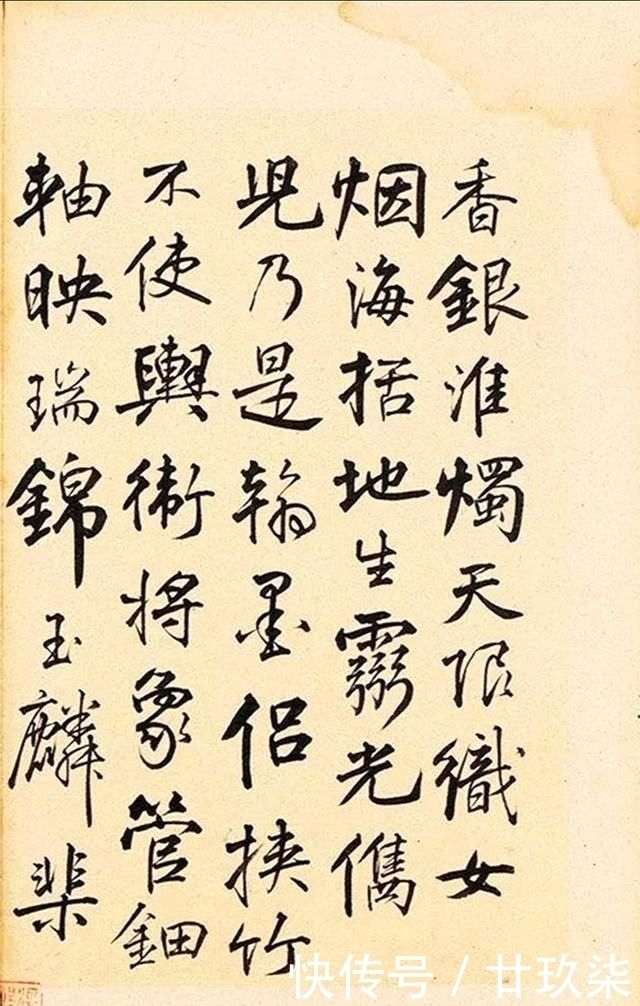 香銀淮燭天限織女
烟海括地生靈光儁
兒乃是翰墨侶挾竹
不使輿衛將象管鈿
軸映瑞錦玉麟棐
快传号 / 廿玖柒